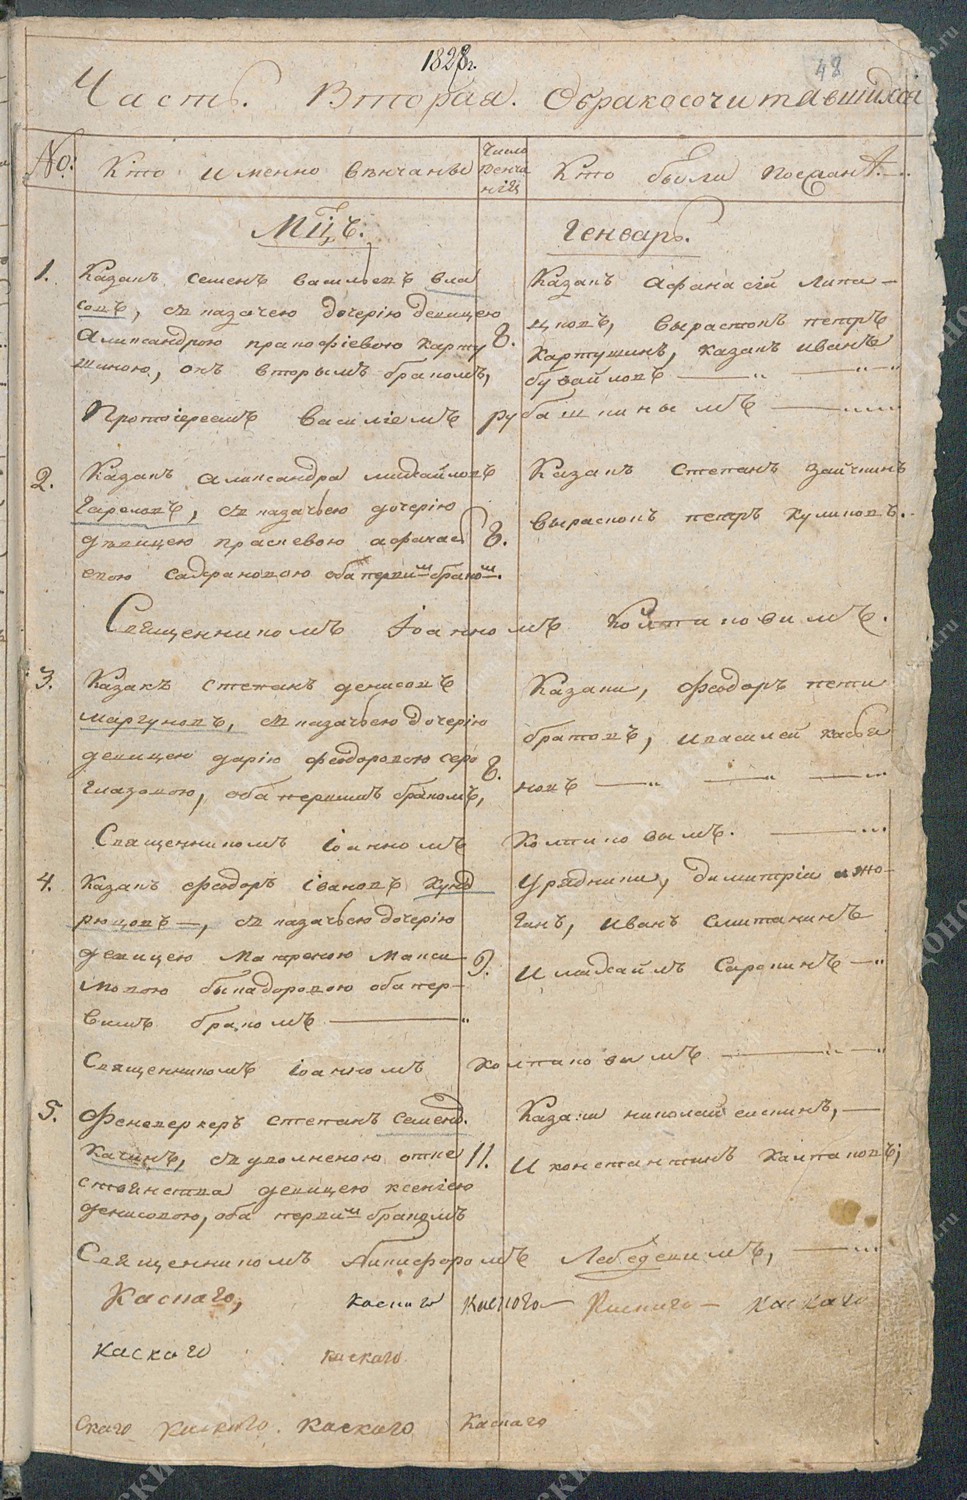 1828г.
48
Часть. Вторая. О бракосочитавшихся
№:
Кто именно венчаны
Число
Венча
нiя
Кто были поезжан
Мцъ.
Генварь.
1.
Казакъ семенъ васильевъ вла
совъ, съ казачею дочерiю девицею
Александрою пракофiевою карту
шиною, онъ вторымъ бракомъ,
8.
Казакъ Афанасiй Липи—
цковъ, вырастокъ петръ
Картушинъ, казакъ иванъ
бувайловъ
Протоiереемъ Василiемъ рубашкинымъ
2.
Казакъ александра михайловъ
Гареловъ, съ казачьею дочерiю
девицею прасковею афанас
евою садчиковою оба первымъ бракомъ.
8.
Казакъ Степанъ Зайчкинъ
Выраспокъ петръ Куликовъ.
Священникомъ Iоанномъ Колпаковымъ.
3.
Казакъ степанъ денисовъ
маргуновъ, съ казачьею дочерiю
девицею дарiю феодоровою серо
глазовою, оба первымъ бракомъ,
8.
Казаки, феодоръ пети
братовъ, ивасилей касьи
новъ
Священникомъ iоанномъ Колпаковымъ.
4.
Казакъ феодоръ iвановъ кунд
рюцовъ—, съ казачьею дочерiю
девицею Матреною Макси
мовою быкадоровою оба пер—
вымъ бракомъ
9.
Урядники, димитрiй ижо—
ганъ, иванъ Слитанинъ
И михайлъ Сорокинъ
Священникомъ iоанномъ колпаковымъ
5.
Феневеркеръ степанъ Семенд.
Качинъ, съ уволненою отъ ке
девицею ксенiею
денисовою, оба первымъ бракомъ
11.
Казаки николай елкинъ,—
И константинъ Калпаковъ;
Священникомъ Никифоромъ Лебедевымъ,
Каскаго, каскаго каскаго— каскаго— каскаго
каскаго каскаго
скаго каскаго. каскаго каскаго